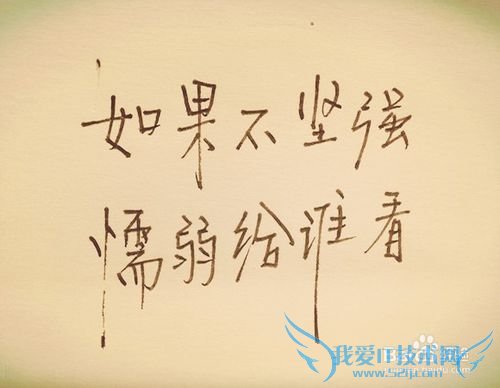 如果不坚强
懦弱给谁看
我爱IT技术网
www.52ij.com